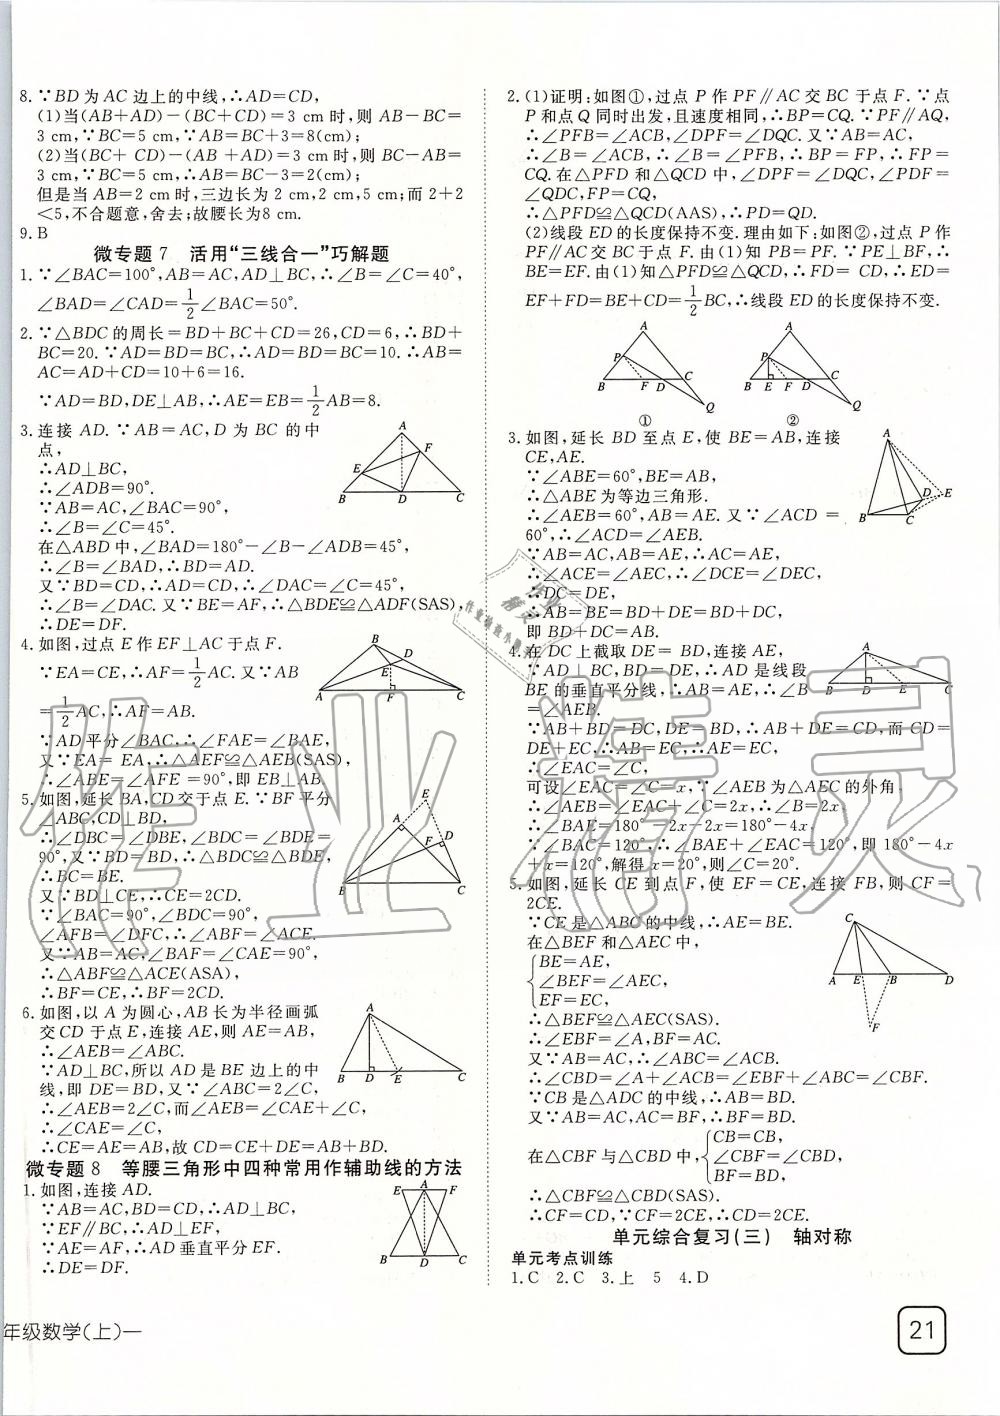 8. ∵BD 为 AC 边上的中线,∴AD=CD,
(1)当(AB+AD)-(BC+CD)=3 cm 时,则 AB-BC=
3 cm,∵BC=5 cm,∴AB=BC+3=8(cm);
(2)当(BC+ CD)-(AB +AD)=3 cm 时,则 BC-AB=
3 cm,∵BC=5 cm,∴AB=BC-3=2(cm);
但是当 AB=2 cm 时,三边长为 2 cm,2 cm,5 cm;而 2+2
<5,不合题意,舍去;故腰长为8 cm.
9. B
微专题 7 活用“三线合一”巧解题
1. ∵∠BAC=100°,AB=AC,AD⊥BC,∴∠B=∠C=40°,
∠BAD=∠CAD=1/2∠BAC=50°.
2. ∵△BDC 的周长=BD+BC+CD=26,CD=6,∴BD+
BC=20. ∵AD=BD=BC,∴AD=BD=BC=10. ∴AB=
AC=AD+CD=10+6=16.
∵AD=BD,DE⊥AB,∴AE=EB=1/2AB=8.
3. 连接 AD. ∵AB=AC,D 为 BC 的中
点,
∴AD⊥BC,
∴∠ADB=90°.
∵AB=AC,∠BAC=90°,
∴∠B=∠C=45°.
在△ABD 中,∠BAD=180°-∠B-∠ADB=45°,
∴∠B=∠BAD,∴BD=AD.
又∵BD=CD,∴AD=CD,∴∠DAC=∠C=45°,
∴∠B=∠DAC. 又∵BE=AF,∴△BDE≌△ADF(SAS),
∴DE=DF.
4. 如图,过点 E 作 EF⊥AC 于点 F.
∵EA=CE,∴AF=1/2AC. 又∵AB
=1/2AC,∴AF=AB.
∵AD 平分∠BAC,∴∠FAE=∠BAE,
又∵EA= EA,∴△AEF≌△AEB(SAS),
∴∠ABE=∠AFE =90°,即 EB⊥AB.
5. 如图,延长 BA,CD 交于点 E. ∵BF 平分
∠ABC,CD⊥BD,
∴∠DBC=∠DBE,∠BDC=∠BDE=
90°,又∵BD=BD,∴△BDC≌△BDE,
∴BC=BE.
又∵BD⊥CE,∴CE=2CD.
∵∠BAC=90°,∠BDC=90°,
∠AFB=∠DFC,∴∠ABF=∠ACE.
又∵AB=AC,∠BAF=∠CAE=90°,
∴△ABF≌△ACE(ASA),
∴BF=CE,∴BF=2CD.
6. 如图,以 A 为圆心,AB 长为半径画弧
交 CD 于点 E,连接 AE,则 AE=AB,
∴∠AEB=∠ABC.
∵AD⊥BC,所以 AD 是 BE 边上的中
线,即 DE=BD,又∵∠ABC=2∠C,
∴∠AEB=2∠C,而∠AEB=∠CAE+∠C,
∴∠CAE=∠C,
∴CE=AE=AB,故 CD=CE+DE=AB+BD.
微专题 8 等腰三角形中四种常用作辅助线的方法
1. 如图,连接 AD.
∵AB=AC,BD=CD,∴AD⊥BC,
∵EF∥BC,∴AD⊥EF,
∵AE=AF,∴AD 垂直平分 EF.
∴DE=DF.
年级数学(上)一
2. (1)证明:如图①,过点 P 作 PF∥AC 交 BC 于点 F. ∵点
P 和点 Q 同时出发,且速度相同,∴BP=CQ. ∵PF∥AQ,
∴∠PFB=∠ACB,∠DPF=∠DQC. 又∵AB=AC,
∴∠B=∠ACB,∴∠B=∠PFB,∴BP=FP,∴FP=
CQ. 在△PFD 和△QCD 中,∠DPF=∠DQC,∠PDF=
∠QDC,FP=CQ,
∴△PFD≌△QCD(AAS),∴PD=QD.
(2)线段 ED 的长度保持不变. 理由如下:如图②,过点 P 作
PF∥AC 交 BC 于点 F. 由(1)知 PB=PF. ∵PE⊥BF,∴
BE=EF. 由(1)知△PFD≌△QCD,∴FD= CD,∴ED=
EF+FD=BE+CD=1/2BC,∴线段 ED 的长度保持不变.
① ②
3. 如图,延长 BD 至点 E,使 BE=AB,连接
CE,AE.
∵∠ABE=60°,BE=AB,
∴△ABE 为等边三角形.
∴∠AEB=60°,AB=AE. 又∵∠ACD =
60°,∴∠ACD=∠AEB.
∵AB=AC,AB=AE,∴AC=AE,
∴∠ACE=∠AEC,∴∠DCE=∠DEC,
∴DC=DE,
∴AB=BE=BD+DE=BD+DC,
即 BD+DC=AB.
4. 在 DC 上截取 DE= BD,连接 AE,
∵AD⊥BC,BD=DE,∴AD 是线段
BE 的垂直平分线,∴AB=AE,∴∠B
=∠AEB.
∵AB+BD=DC,DE=BD,∴AB+DE=CD,而 CD=
DE+EC,∴AB=EC,∴AE=EC,
∴∠EAC=∠C,
可设∠EAC=∠C=x,∵∠AEB 为△AEC 的外角,
∴∠AEB=∠EAC+∠C=2x,∴∠B=2x,
∴∠BAE=180°-2x-2x=180°-4x,
∵∠BAC=120°,∴∠BAE+∠EAC=120°,即 180°-4x
+x=120°,解得 x=20°,则∠C=20°.
5. 如图,延长 CE 到点 F,使 EF=CE,连接 FB,则 CF=
2CE.
∵CE 是△ABC 的中线,∴AE=BE.
在△BEF 和△AEC 中,
BE=AE,
∠BEF=∠AEC,
EF=EC,
∴△BEF≌△AEC(SAS).
∴∠EBF=∠A,BF=AC.
又∵AB=AC,∴∠ABC=∠ACB.
∴∠CBD=∠A+∠ACB=∠EBF+∠ABC=∠CBF.
∵CB 是△ADC 的中线,∴AB=BD.
又∵AB=AC,AC=BF,∴BF=BD.
在△CBF 与△CBD 中,
CB=CB,
∠CBF=∠CBD,
BF=BD,
∴△CBF≌△CBD(SAS).
∴CF=CD,∵CF=2CE,∴CD=2CE.
单元综合复习(三) 轴对称
单元考点训练
1. C 2. C 3. 上 5 4. D
21
作业精灵